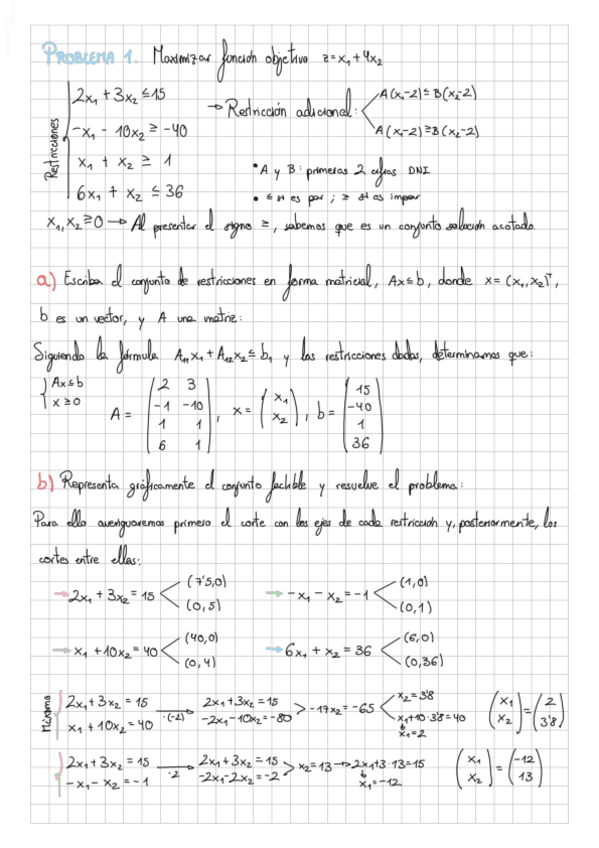 PROBLEMA 1. Maximizar función objetivo z=x₁+4x₂
Restricciones
2x₁+3x₂≤15
-x₁ - 10x₂ ≥ -40
x₁ + x₂ ≥ 1
6x₁ + x₂ ≤ 36
→ Restricción adicional:
A(x₁-2)≤B(x₂-2)
A(x₁-2)≥B(x₂-2)
• A y B: primeras 2 cifras DNI
• ≤ si es par ; ≥ si es impar
x₁,x₂≥0 → Al presentar el signo ≥, sabemos que es un conjunto solución acotado.
a) Escriba el conjunto de restricciones en forma matricial, Ax≤b, donde x=(x₁,x₂)ᵀ,
b es un vector, y A una matriz:
Siguiendo la fórmula A₁₁x₁+A₁₂x₂≤b₁ y las restricciones dadas, determinamos que:
{ Ax≤b
x≥0
A = ( 2 3
-1 -10
1 1
6 1 ) , x = ( x₁
x₂ ) , b = ( 15
-40
1
36 )
b) Representa gráficamente el conjunto factible y resuelve el problema:
Para ello averiguaremos primero el corte con los ejes de cada restricción y, posteriormente, los
cortes entre ellas:
→ 2x₁+3x₂=15 (7'5,0)
(0,5)
→ -x₁-x₂=-1 (1,0)
(0,1)
→ x₁+10x₂=40 (40,0)
(0,4)
→ 6x₁+x₂=36 (6,0)
(0,36)
Máximo
2x₁+3x₂=15
x₁+10x₂=40
·(-2)
2x₁+3x₂=15
-2x₁-10x₂=-80
-17x₂=-65
x₂=3'8
x₁+10·3'8=40
x₁=2
(x₁
x₂) = (2
3'8)
2x₁+3x₂=15
-x₁-x₂=-1
·2
2x₁+3x₂=15
-2x₁-2x₂=-2
x₂=13 → 2x₁+3·13=15
x₁=-12
(x₁
x₂) = (-12
13)